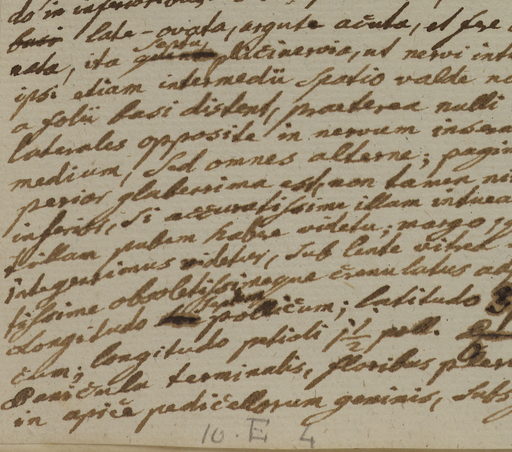 do in inferioribus
late-ovata, argute acuta, et fere
eata, ita septu plicinervia, ut nervi int
ipsi etiam intermedii spatio valde no
a folii basi distent, praeterea nulli
laterales opposite in nervum insera
medium, sed omnes alterne; pagin
perior glaberrima est, non tamen ni
inferior, si accuratissime illam intuea
illam pubem habere videtur; margo
integerrimus videtur, sub lente vitrel
tissime obsoletissimeque crenulatus ad
Longitudo pollicum; latitudo 3
cum; longitudo petioli 1 1/2 poll.
Panicula terminalis, floribus
in apice pedicellorum geminis, subs
10. E 4